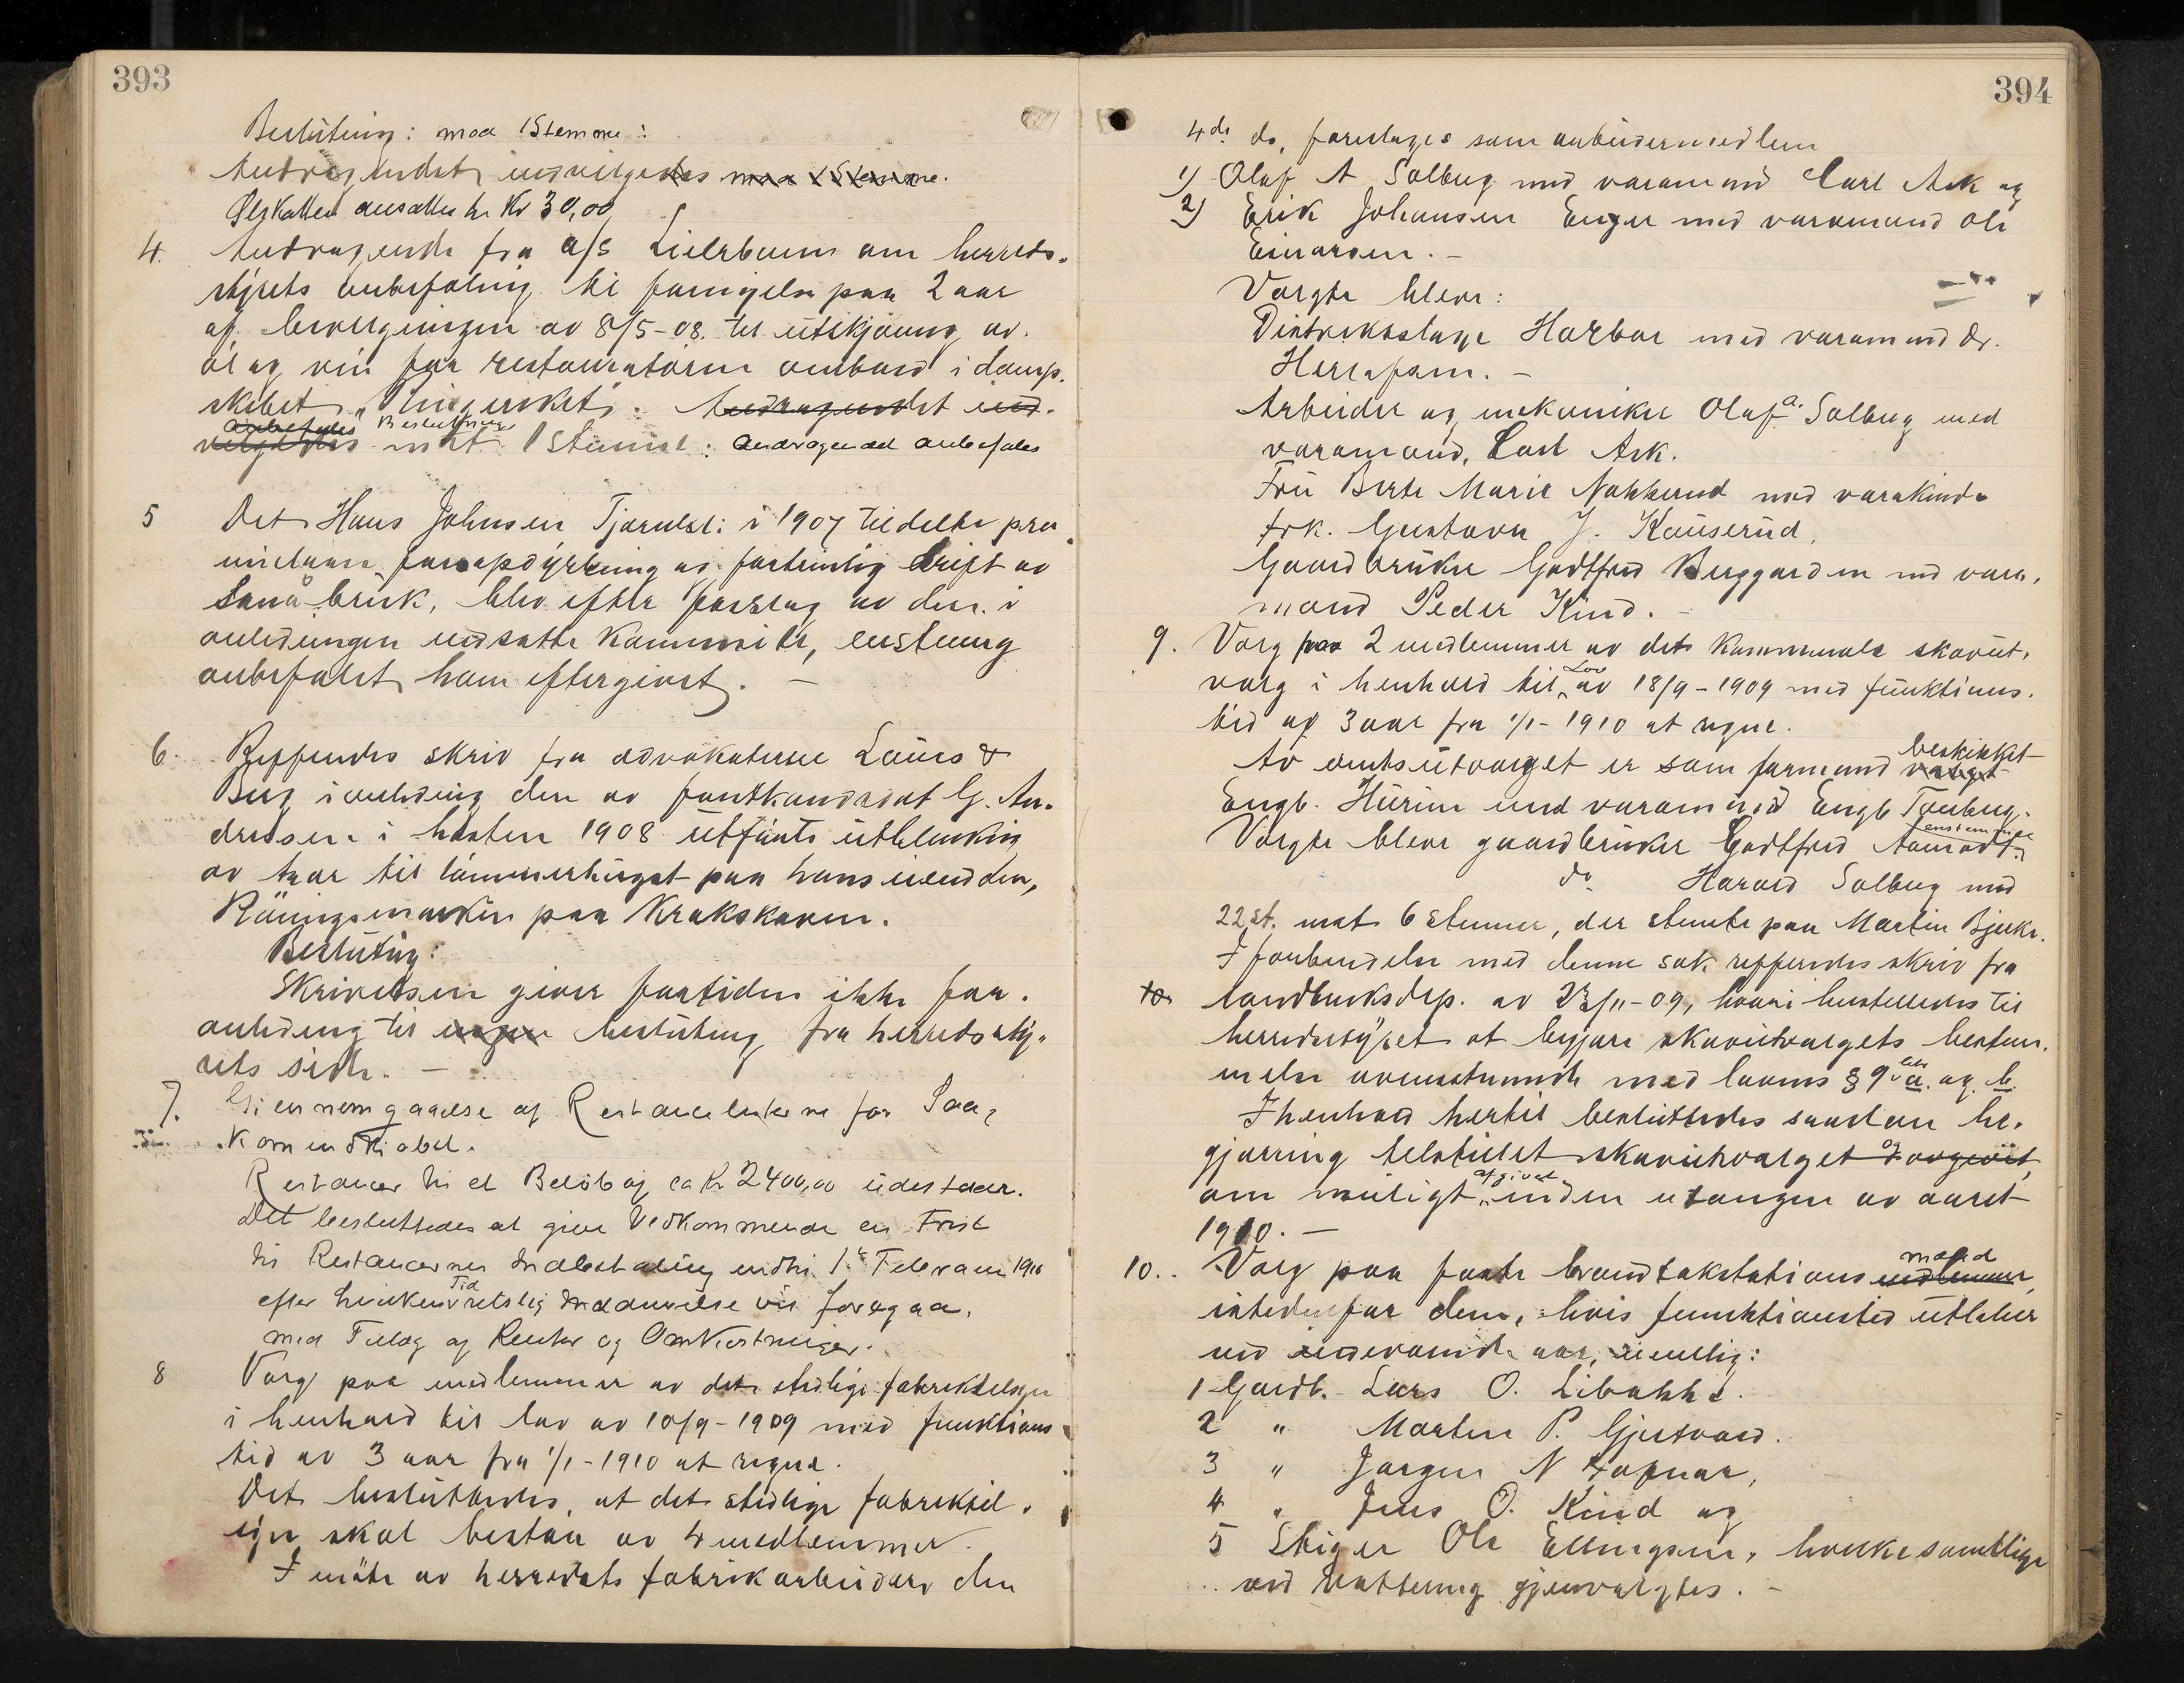 393
Beslutning: mod 1 Stemme:
Andragendet indvilgedes mod 1 Stemme.
Ølskatten ansattes til Kr 30,00
4. Andragende fra a/s Lierbanen om herreds-
styrets anbefaling til fornyelse paa 2 aar
af bevilgningen av 8/5-08. til utskjænkning av
øl og vin for restauratøren ombord i damp-
skibet "Ringerike". Andragendet ind-
anbefales Beslutning
vilgedes mot 1 stemme: Andragendet anbefales
5 Det Hans Johnsen Tjernsl: i 1907 tildelte pre-
mielaan for opdyrkning og fortrinlig drift av
Smaabruk, blev efter forslag av den i
anledningen nedsatte Kommité, enstemmig
anbefalet ham eftergivet. –
6. Refferedes skriv fra advokaterne Lous &
Berg i anledning den av forstkandidat G. An-
dresen i høsten 1908 utførte utblinkning
av trær til tømmerhugst paa hans eiendom,
Røningsmarken paa Krokskoven.
Beslutning:
Skrivelsen giver fortiden ikke for-
anledning til nogen beslutning fra herredssty-
rets side. –
7. Giennemgaaelse af Restancelisterne for Saa-
kornindkiøbet.
Restancer til et Beløb af ca Kr 2400,00 udestaar.
Det besluttedes at give Vedkommende en Frist
til Restancernes Indbetaling indtil 1ste Februar 1910
efter hvilken Tid retslig Inddrivelse vil foregaa,
med Tillæg af Renter og Omkostninger.
8 Valg paa medlemmer av det stedlige fabriktilsyn
i henhold til lov av 10/9-1909 med funktions-
tid av 3 aar fra 1/1-1910 at regne.
Det besluttedes, at det stedlige fabriktil-
syn skal bestaa av 4 medlemmer.
I møte av herredets fabrikarbeidere den
394
4de ds. foreslages som arbeidermedlem
1) Olaf A Solberg med varamand Carl Ask og
2) Erik Johansen Enger med varamand Ole
Einarsen. –
Valgte blev:
Distriktslæge Harboe med varamand dr.
Herrefosn. –
Arbeider og mekaniker Olaf A. Solberg med
varamand, Carl Ask.
Fru Berte Marie Nakkerud med varakvinde
frk. Gustava J. Kauserud.
Gaardbruker Godtfred Berggarden med vara-
mand Peder Kind.
9. Valg paa 2 medlemmer av det Kommunale skogut-
valg i henhold til Lov av 18/9-1909 med funktions-
tid af 3 aar fra 1/1-1910 at regne.
Av amtsutvalget er som formand valgt beskikket
Engb. Hurum med varamand Engb Tanberg.
Valgte blev gaardbruker Godtfred Aamodt, enstemmige
do Harald Solberg med
22 st. mot 6 stemmer, der stemte paa Martin Bjerke.
I forbindelse med denne sak refferedes skriv fra
landbruksdep. av 23/11-09, hvori henstilledes til
herredsstyret at begjære skogutvalgets bestem-
melse overensstemmende med lovens § 9 litr a. og b.
I henhold hertil besluttedes saadan be-
gjæring tilstillet skogutvalget og avgivet,
om muligt afgivet inden utgangen av aaret
1910. –
10. Valg paa faste brandtakstationsmedlemmer mænd
istedenfor dem, hvis funktionstid utløber
ved inderværende aar, nemlig:
1 Gaardb. Lars O. Libakke.
2 " Martin P. Gjertvad.
3 " Jørgen N Hafnor,
4 " Jens O. Kind og
5 Stiger Ole Ellingsen, hvilke samtlige
ved votering gjenvalgtes. –